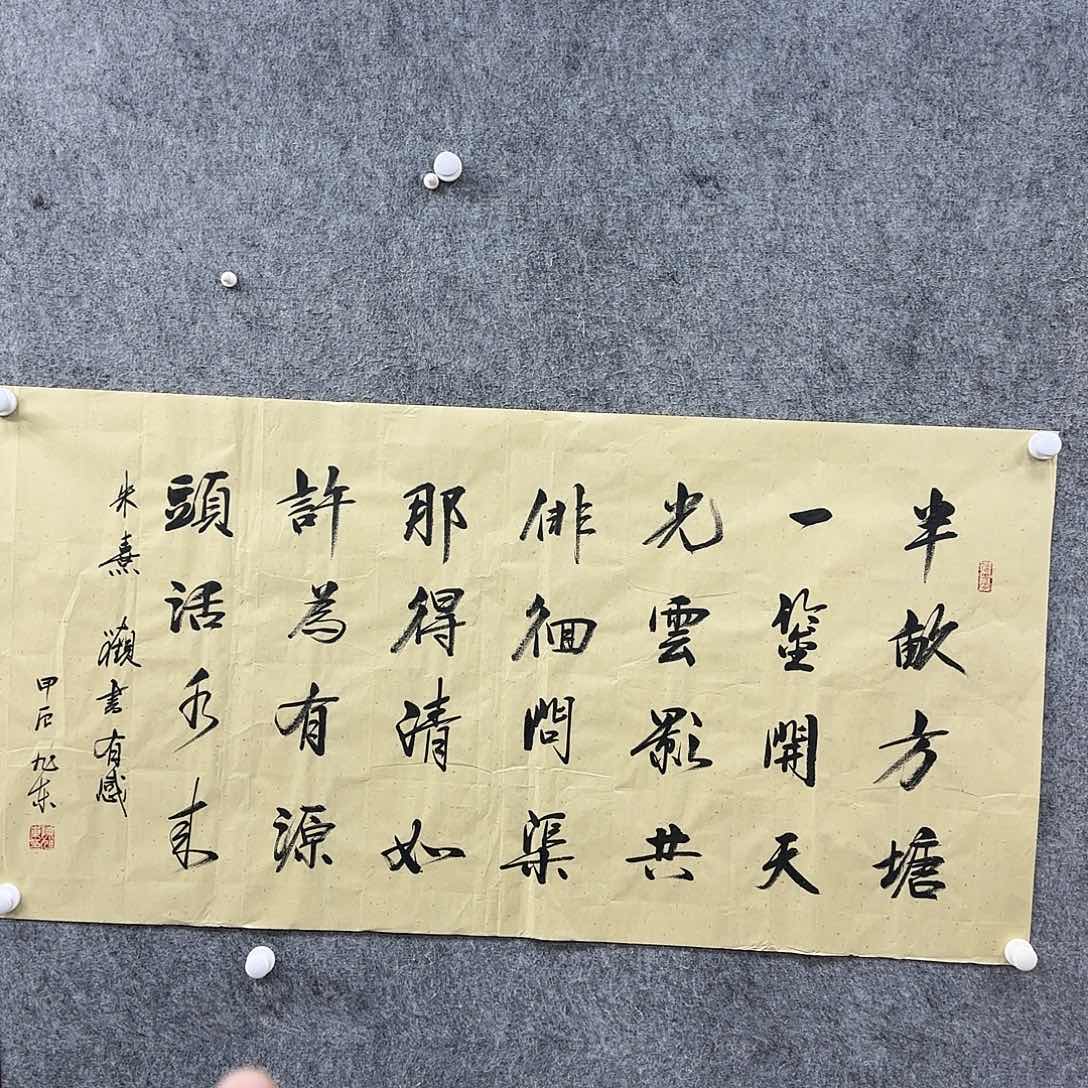 半畝方塘
一鑒開天
光雲影共
徘徊問渠
那得清如
許為有源
頭活水来
朱熹 觀書有感
甲辰 旭东